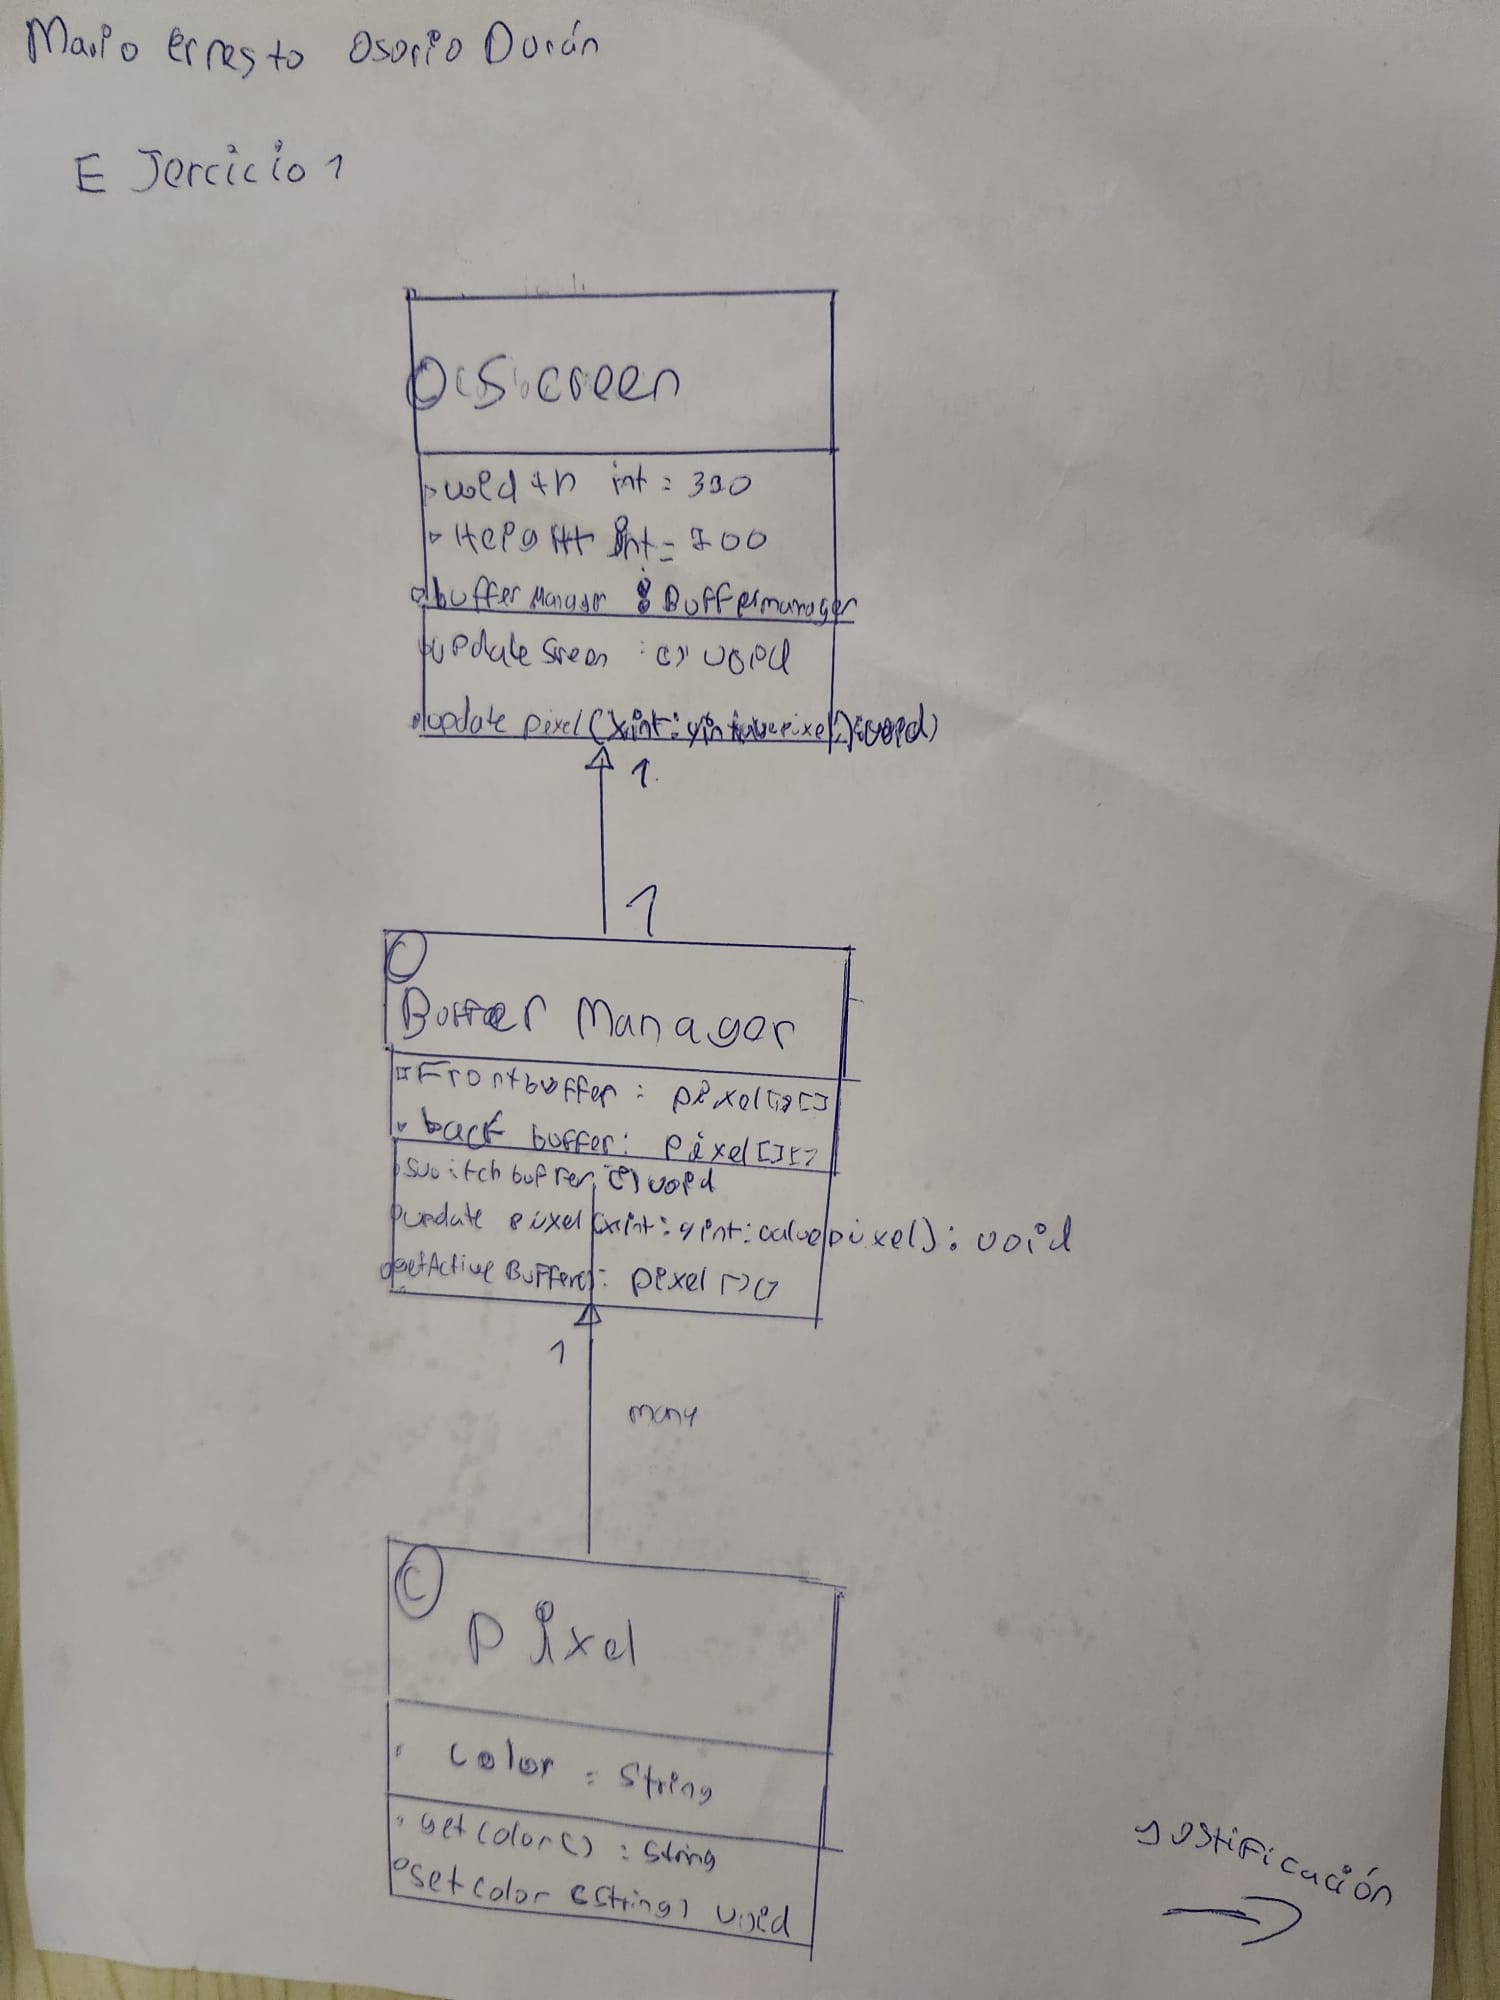 Mario Ernesto Osorio Durán
EJercicio 1
C Screen
weidth int = 390
HeigHt int = 700
bufferManager : Buffermanager
updateSreen : () void
update pixel (x int : y int value pixel) : void)
1
1
Buffer Manager
Frontbuffer : pixel[][]
back buffer : pixel[][]
Switchbuffer () void
update pixel (x int : y int : value pixel) : void
getActive Buffer() : pixel [][]
1
many
C
Pixel
color : String
getColor() : String
setcolor (String) void
justificación